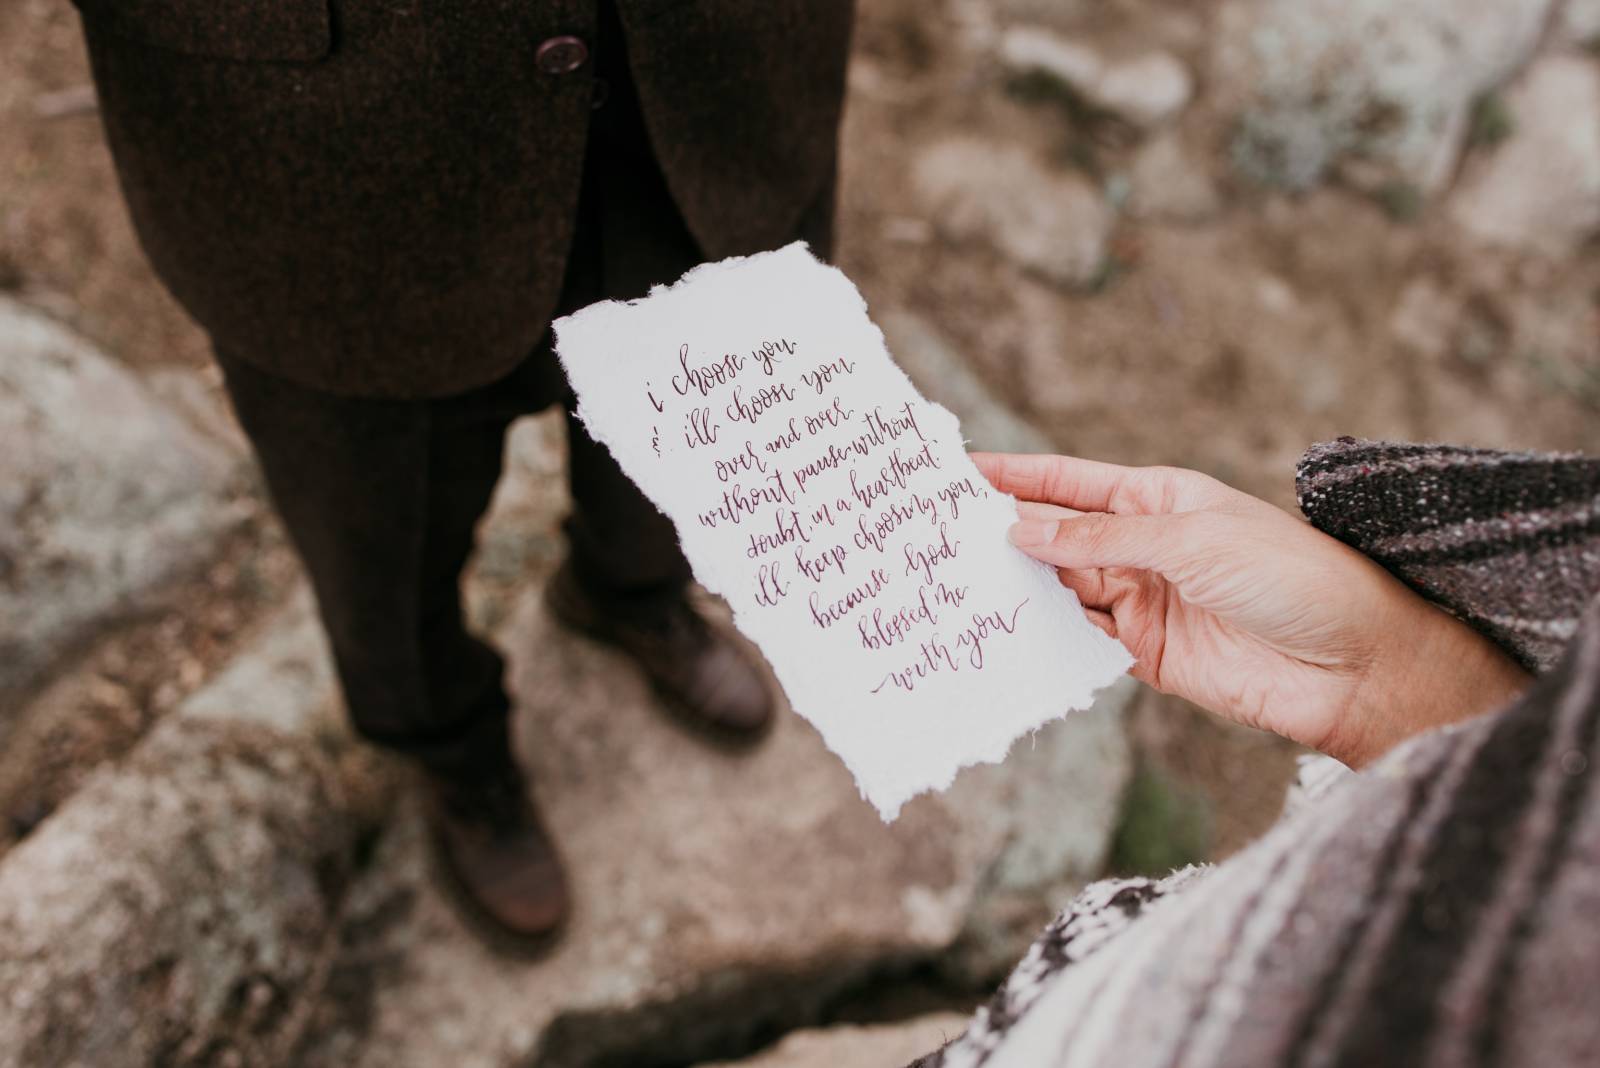 i choose you
& i'll choose you
over and over
without pause, without
doubt, in a heartbeat.
i'll keep choosing you,
because God
blessed me
with you